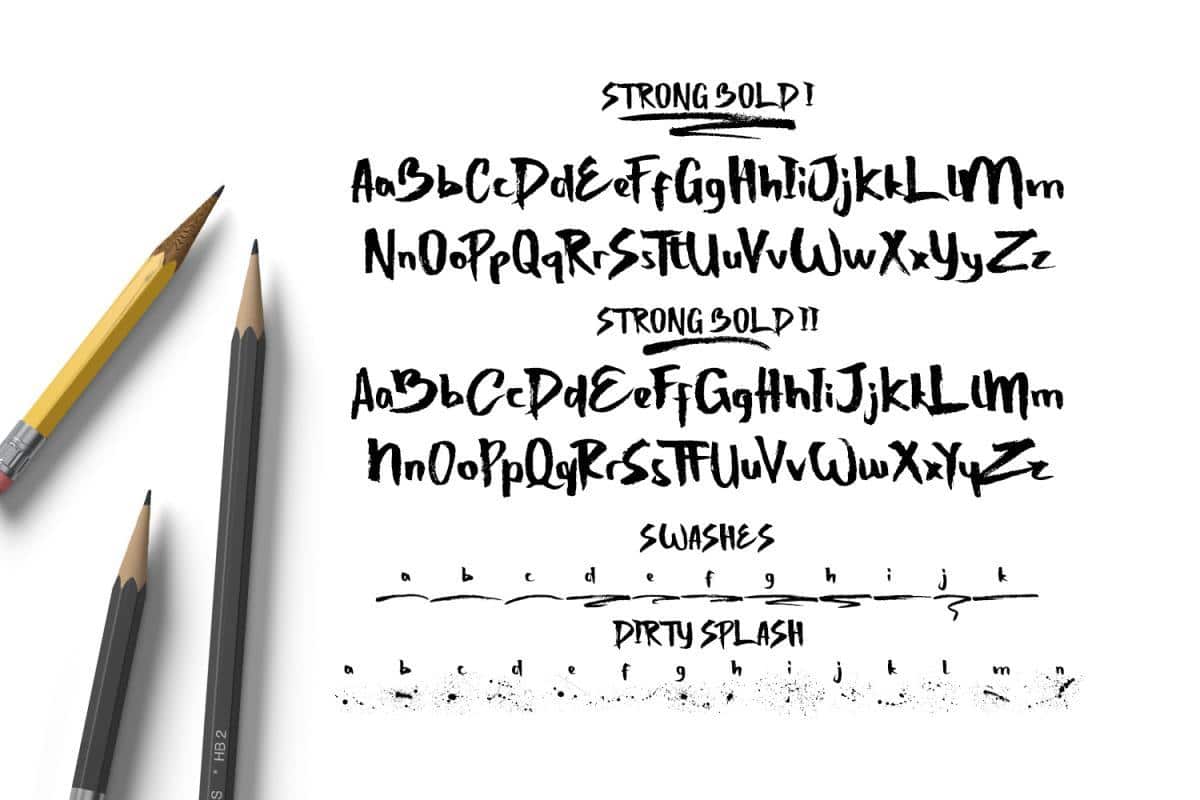 STRONG BOLD I
AaBbCcDdEeFfGgHhIiJjKkLlMm
NnOoPpQqRrSsTtUuVvWwXxYyZz
STRONG BOLD II
AaBbCcDdEeFfGgHhIiJjKkLlMm
nnOoPpQqRrSsTTUuVvWwXxYyZz
SWASHES
a b c d e f g h i j k
DIRTY SPLASH
a b c d e f g h i j k l m n
S * HB 2